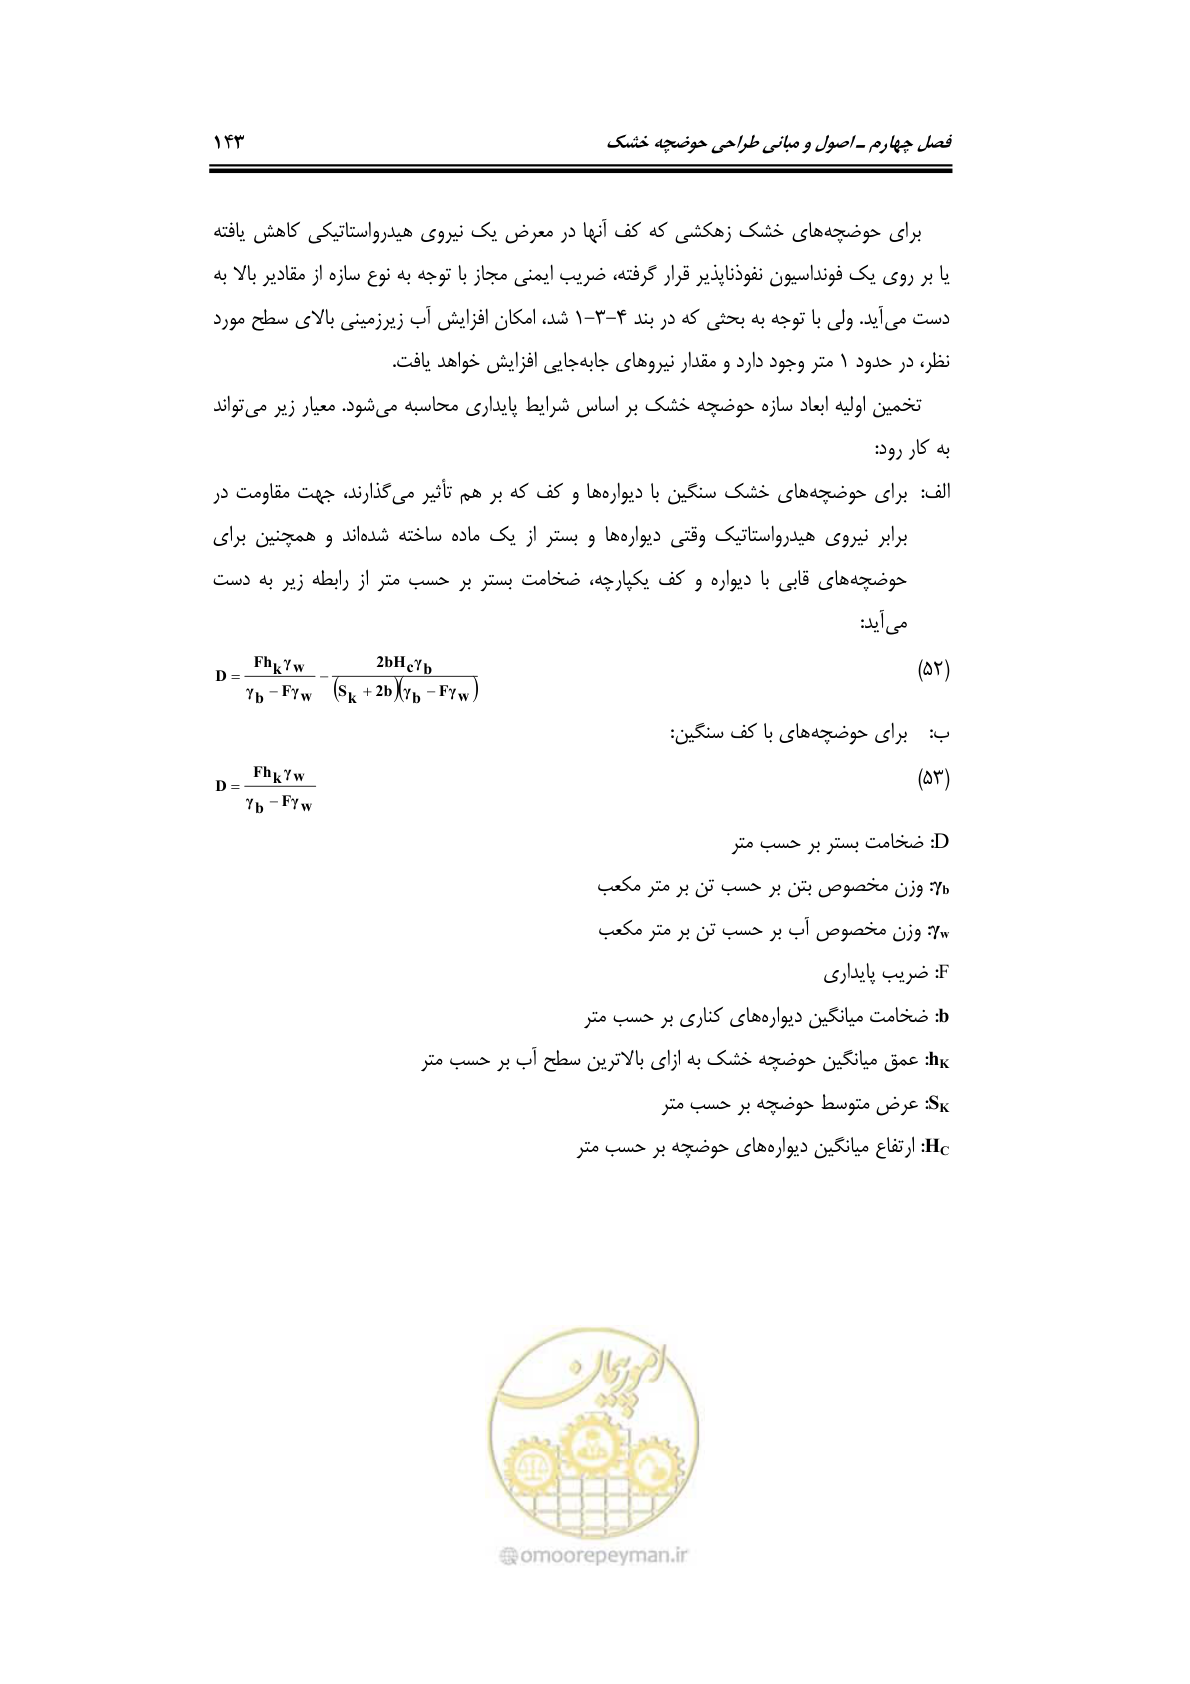 فصل چهارم ـ اصول و مبانی طراحی حوضچه خشک ۱۴۳
برای حوضچه‌های خشک زهکشی که کف آنها در معرض یک نیروی هیدرواستاتیکی کاهش یافته
یا بر روی یک فونداسیون نفوذناپذیر قرار گرفته، ضریب ایمنی مجاز با توجه به نوع سازه از مقادیر بالا به
دست می‌آید. ولی با توجه به بحثی که در بند ۴-۳-۱ شد، امکان افزایش آب زیرزمینی بالای سطح مورد
نظر، در حدود ۱ متر وجود دارد و مقدار نیروهای جابه‌جایی افزایش خواهد یافت.
تخمین اولیه ابعاد سازه حوضچه خشک بر اساس شرایط پایداری محاسبه می‌شود. معیار زیر می‌تواند
به کار رود:
الف: برای حوضچه‌های خشک سنگین با دیواره‌ها و کف که بر هم تأثیر می‌گذارند، جهت مقاومت در
برابر نیروی هیدرواستاتیک وقتی دیواره‌ها و بستر از یک ماده ساخته شده‌اند و همچنین برای
حوضچه‌های قابی با دیواره و کف یکپارچه، ضخامت بستر بر حسب متر از رابطه زیر به دست
می‌آید:
(۵۲) D = Fh_k γ_w / (γ_b − Fγ_w) − 2bH_c γ_b / ((S_k + 2b)(γ_b − Fγ_w))
ب: برای حوضچه‌های با کف سنگین:
(۵۳) D = Fh_k γ_w / (γ_b − Fγ_w)
D: ضخامت بستر بر حسب متر
γb: وزن مخصوص بتن بر حسب تن بر متر مکعب
γw: وزن مخصوص آب بر حسب تن بر متر مکعب
F: ضریب پایداری
b: ضخامت میانگین دیواره‌های کناری بر حسب متر
hK: عمق میانگین حوضچه خشک به ازای بالاترین سطح آب بر حسب متر
SK: عرض متوسط حوضچه بر حسب متر
HC: ارتفاع میانگین دیواره‌های حوضچه بر حسب متر
امور پیمان
omoorepeyman.ir